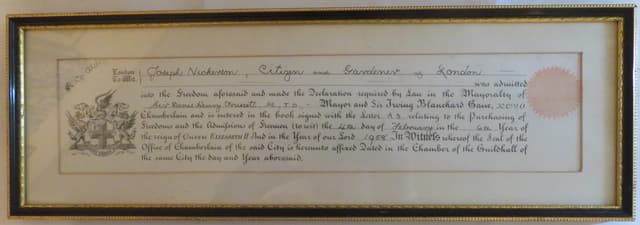 London To Wit. } Joseph Nickerson, Citizen and Gardener of London — was admitted
into the Freedom aforesaid and made the Declaration required by Law in the Mayoralty of
Sir Denis Henry Truscott, M, T.D., Mayor and Sir Irving Blanchard Gane, KCVO
Chamberlain and is entered in the book signed with the Letter relating to the Purchasing of
Freedoms and the Admissions of Freemen (to wit) the 4th day of February in the 6th Year of
the reign of Queen ELIZABETH II And in the Year of our Lord 1958 In Witness whereof the Seal of the
Office of Chamberlain of the said City is hereunto affixed Dated in the Chamber of the Guildhall of
the same City the day and Year abovesaid.